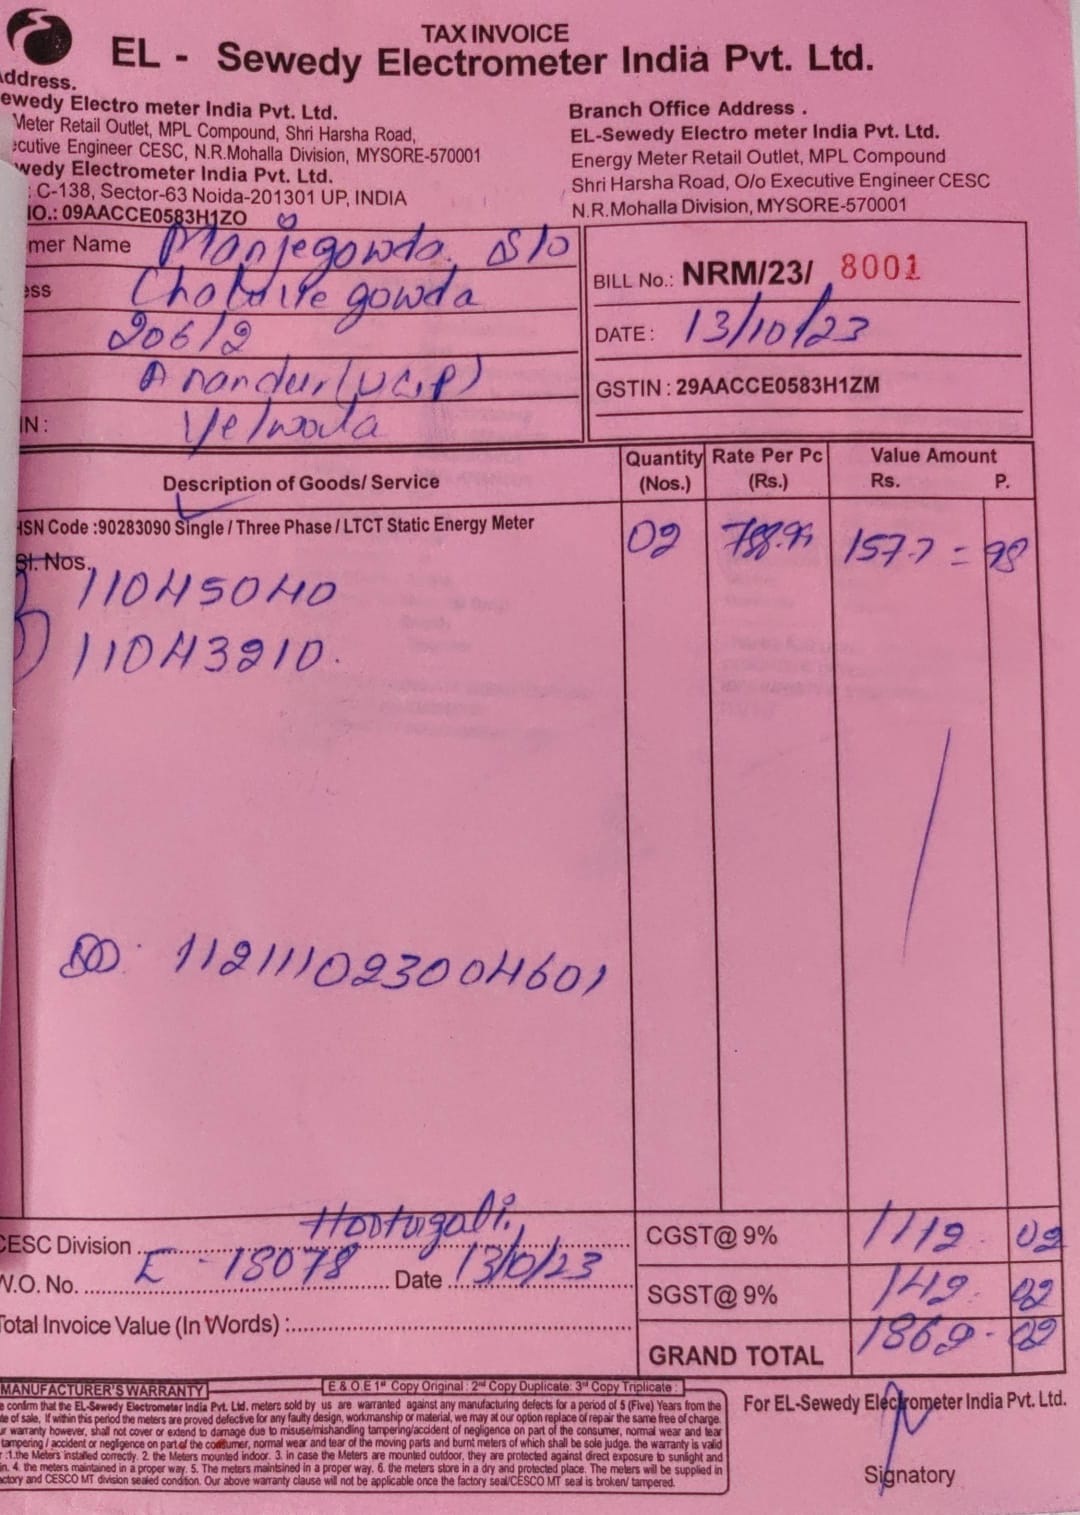 TAX INVOICE
EL - Sewedy Electrometer India Pvt. Ltd.
Address.
ewedy Electro meter India Pvt. Ltd.
Meter Retail Outlet, MPL Compound, Shri Harsha Road,
ecutive Engineer CESC, N.R.Mohalla Division, MYSORE-570001
wedy Electrometer India Pvt. Ltd.
: C-138, Sector-63 Noida-201301 UP, INDIA
NO.: 09AACCE0583H1ZO
Branch Office Address .
EL-Sewedy Electro meter India Pvt. Ltd.
Energy Meter Retail Outlet, MPL Compound
Shri Harsha Road, O/o Executive Engineer CESC
N.R.Mohalla Division, MYSORE-570001
mer Name Manjegowda. S/o
ess gowda
206/2
Anandur
IN: Yelwala
BILL No.: NRM/23/ 8001
DATE: 13/10/23
GSTIN : 29AACCE0583H1ZM
Description of Goods/ Service
Quantity (Nos.)
Rate Per Pc (Rs.)
Value Amount
Rs. P.
HSN Code :90283090 Single / Three Phase / LTCT Static Energy Meter
02 788.99 1577=98
Sl. Nos.
11045040
11043210.
DD: 112111023004601
CESC Division Hootagalli.
W.O. No. E-18078 Date 13/10/23
Total Invoice Value (In Words) :
CGST@ 9%
SGST@ 9% 142. 02
GRAND TOTAL 02
MANUFACTURER'S WARRANTY
E & O.E 1st Copy Original : 2nd Copy Duplicate: 3rd Copy Triplicate :
e confirm that the EL-Sewedy Electrometer India Pvt. Ltd. meters sold by us are warranted against any manufacturing defects for a period of 5 (Five) Years from the
te of sale, If within this period the meters are proved defective for any faulty design, workmanship or material, we may at our option replace of repair the same free of charge.
ur warranty however, shall not cover or extend to damage due to misuse/mishandling tampering/accident of negligence on part of the consumer, normal wear and tear
tampering / accident or negligence on part of the costumer, normal wear and tear of the moving parts and burnt meters of which shall be sole judge. the warranty is valid
:1.the Meters installed correctly. 2. the Meters mounted indoor. 3. in case the Meters are mounted outdoor, they are protected against direct exposure to sunlight and
in. 4. the meters maintained in a proper way. 5. The meters maintsined in a proper way. 6. the meters store in a dry and protected place. The meters will be supplied in
actory and CESCO MT division sealed condition. Our above warranty clause will not be applicable once the factory seal/CESCO MT seal is broken/ tampered.
For EL-Sewedy Electrometer India Pvt. Ltd.
Signatory